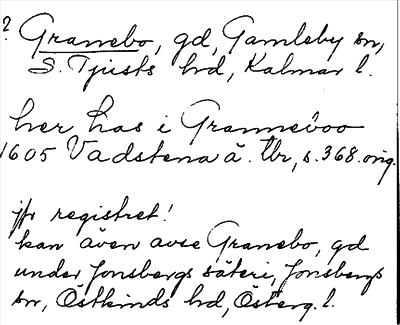 ? Granebo, gd, Gamleby sn,
S. Tjusts hd, Kalmar l.
her Lias i Granneboo
1605 Vadstena ä. tbr, s. 368. orig.
jfr registret!
kan även avse Granebo, gd
under Jonsbergs säteri, Jonsbergs
sn, Östkinds hd, Österg. l.